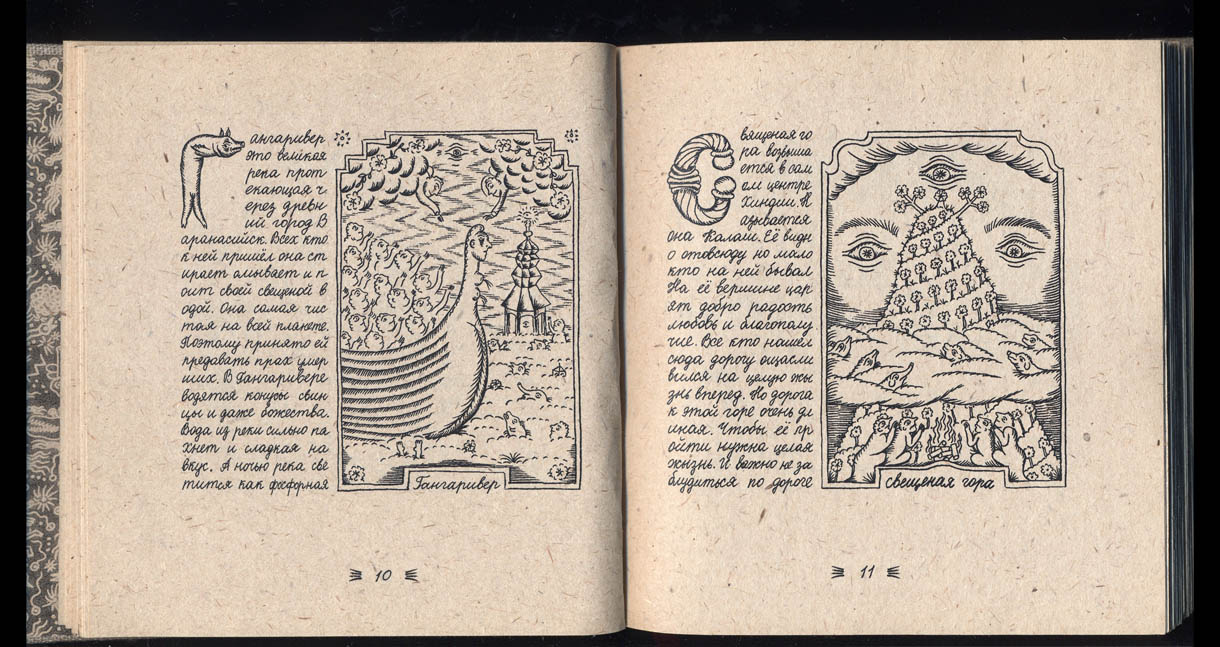 Гангаривер
это великая
река прот
екающая ч
ерез древн
ий город В
аранасийск. Всех кто
к ней пришёл она ст
ирает омывает и п
оит своей свещеной в
одой. Она самая чис
тая на всей планете.
Поэтому принято ей
предавать прах умер
ших. В Гангаривере
водятся конусы свин
цы и даже божества.
Вода из реки сильно па
хнет и сладкая на
вкус. А ночью река све
тится как фосфорная
Гангаривер
10
Священая го
ра возвыша
ется в сам
ом центре
Хиндии. Н
азывается
она Калаш. Её видн
о отовсюду но мало
кто на ней бывал
На её вершине цар
ят добро радость
любовь и благополу
чие. Все кто нашёл
сюда дорогу ощасли
вился на целую жы
знь вперед. Но дорога
к этой горе очень дл
иная. Чтобы её пр
ойти нужна целая
жызнь. И важно не за
блудиться по дороге
свещеная гора
11